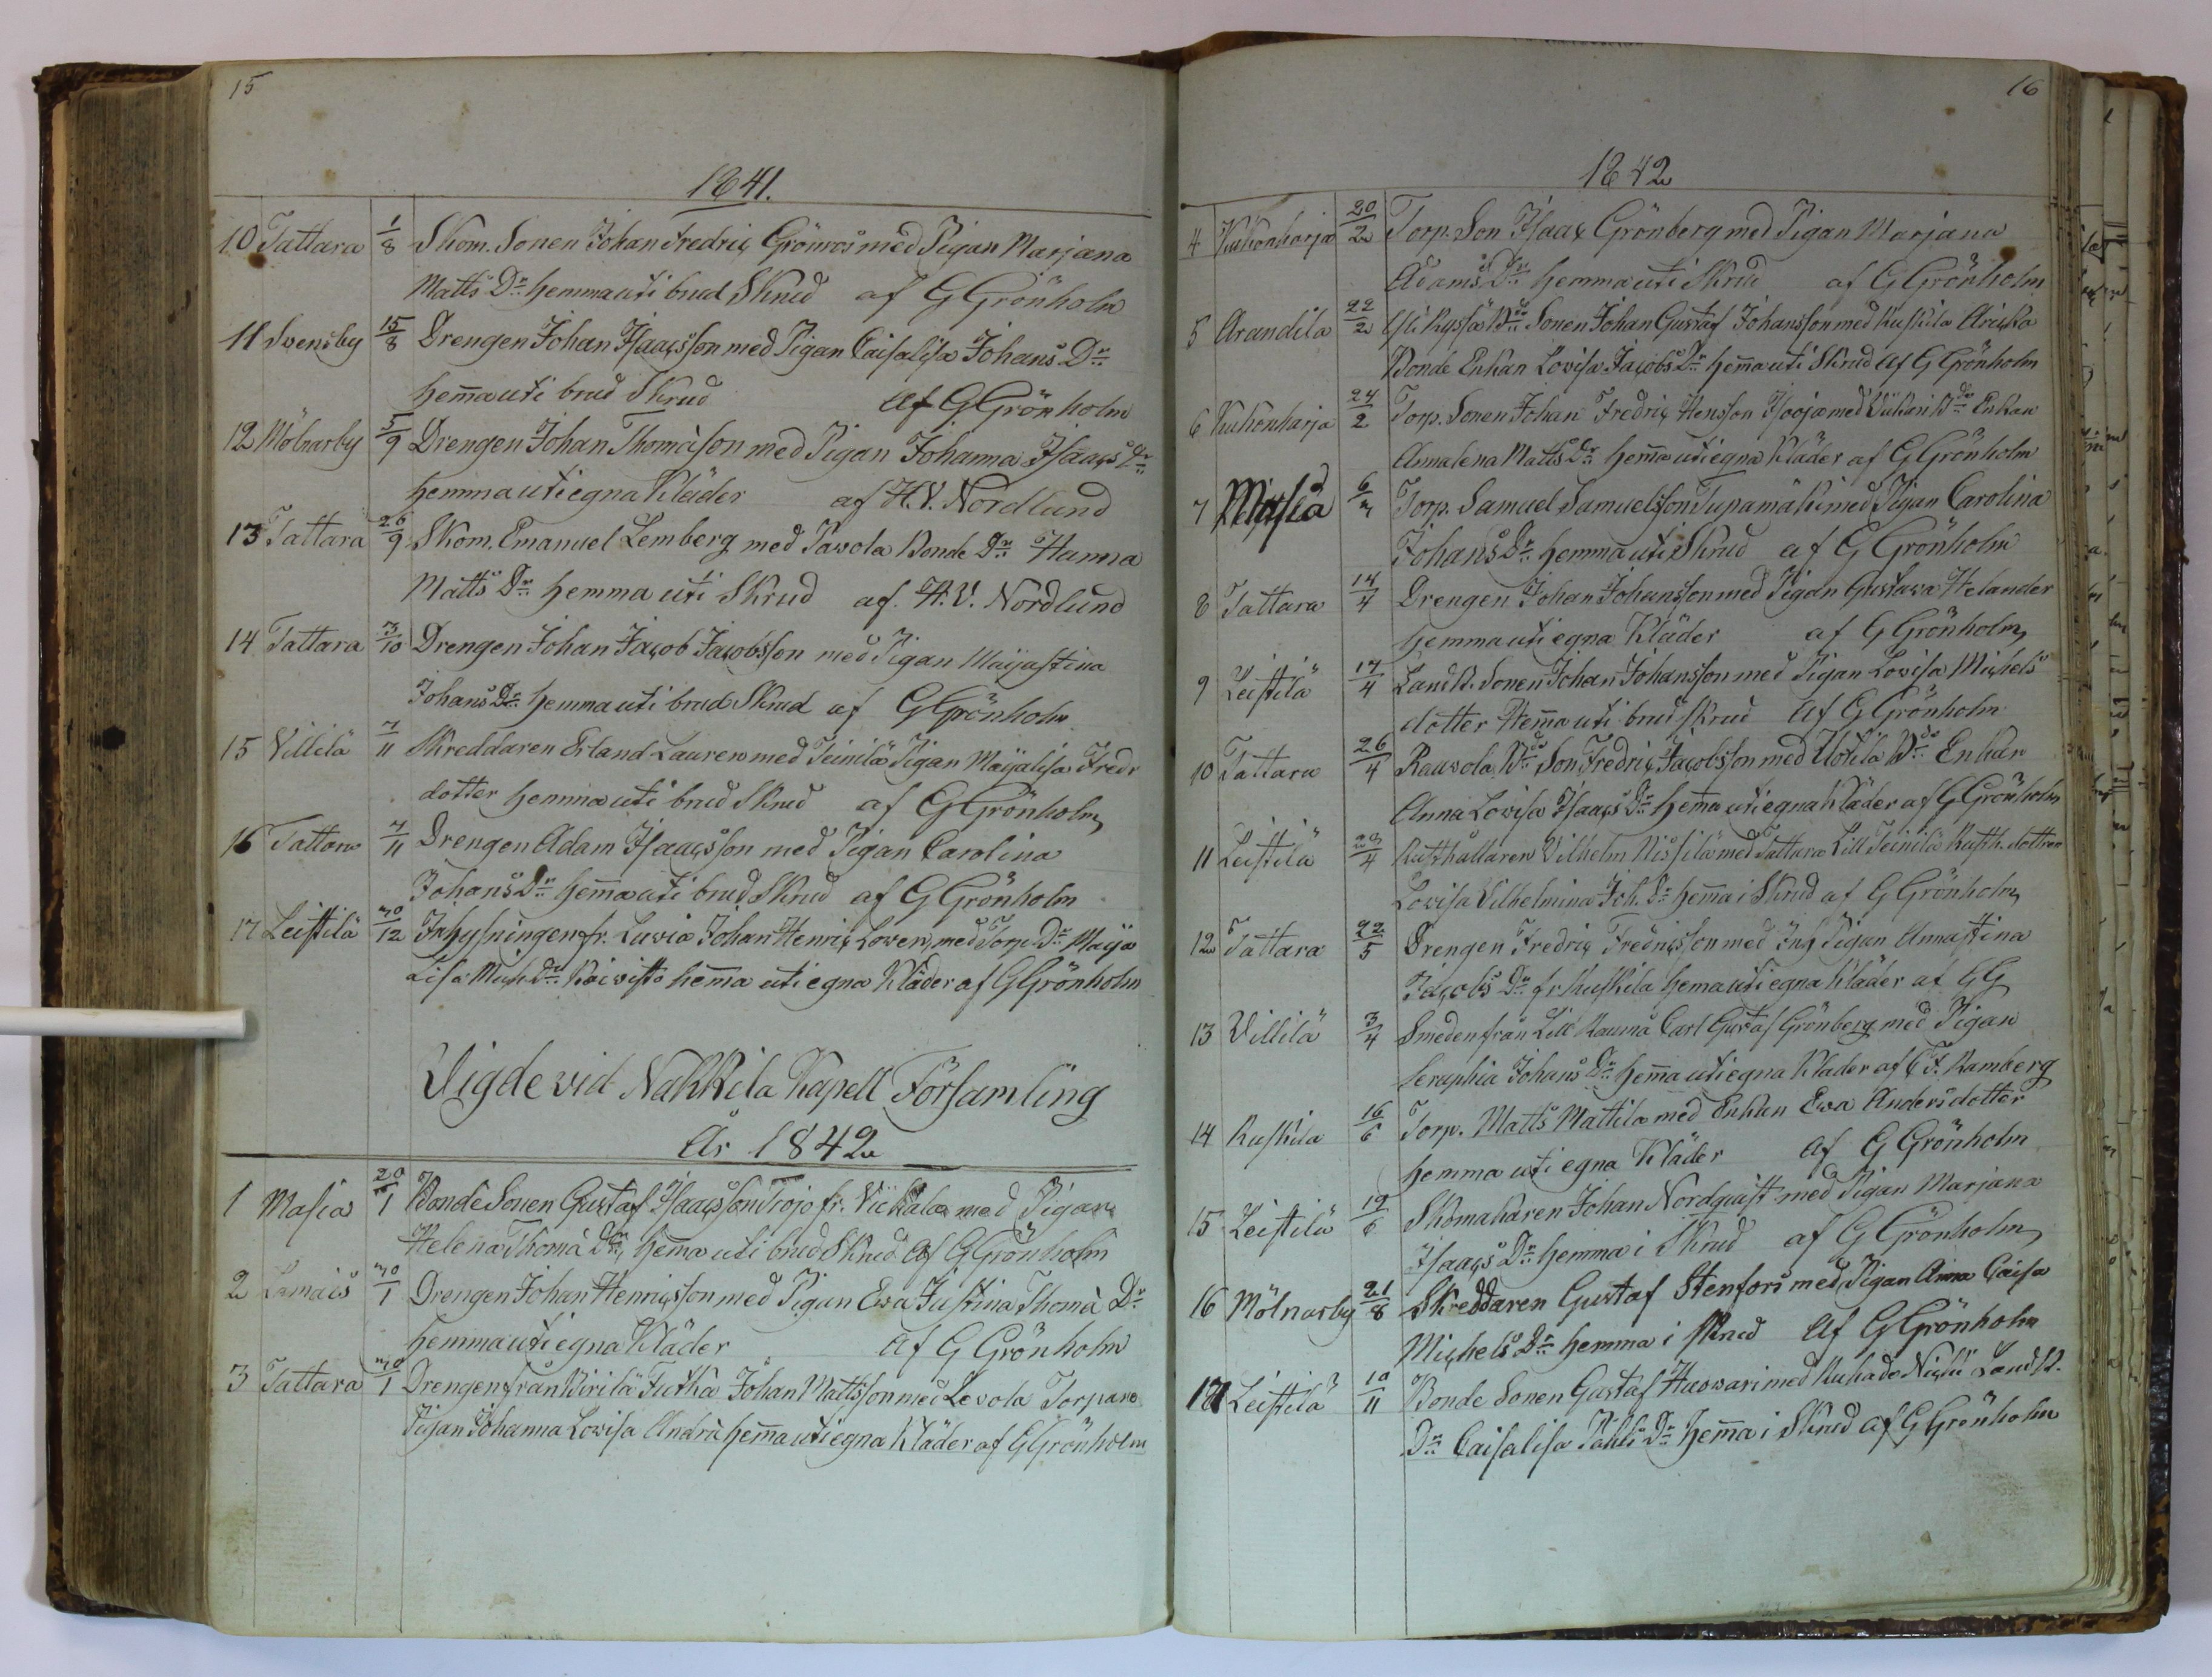 15
1841.
10 Tattara 1/8 Skom. Sonen Johan Fredric Grönroos med Pigan Marjana
Matts Dr hemma uti brud Skrud af G Grönholm
11 Svensby 15/8 Drengen Johan Isaacsson med Pigan Caisalisa Johans Dr
hemma uti brud Skrud af G Grönholm
12 Mölnarby 5/9 Drengen Johan Thomasson med Pigan Johanna Isaacs Dr
hemma uti egna Kläder af H.V. Nordlund
13 Tattara 26/9 Skom. Emanuel Lemberg med Pawola Bonde Dr Hanna
Matts Dr hemma uti Skrud af H.V. Nordlund
14 Tattara 3/10 Drengen Johan Jacob Jacobsson med Pigan Majastina
Johans Dr hemma uti brud Skrud af G Grönholm
15 Villilä 7/11 Skreddaren Erland Lauren med Teinilä Pigan Maijalisa Fredr
dotter hemma uti brud Skrud af G Grönholm
16 Tattara 7/11 Drengen Adam Isaacsson med Pigan Carolina
Johans Dr hemma uti brud Skrud af G Grönholm
17 Leistilä 30/12 Inhysningen fr. Luvia Johan Henric Löwen med Torp. Dr Maija
Lisa Mich. Dr Koivisto hemma uti egna Kläder af G Grönholm
Vigde vid Nakkila Kapell Församling
År 1842
1 Masia 20/1 Bonde Sonen Gustaf Isaacsson Trojo fr. Vickala med Pigan
Helena Thomä Dr hemma uti brud Skrud af G Grönholm
2 Lamais 30/1 Drengen Johan Henricsson med Pigan Eva Justina Thomä Dr
hemma uti egna Kläder af G Grönholm
3 Tattara 30/1 Drengen från Pirilä Juthka Johan Mattsson med Levola Torpare
Pigan Johanna Lovisa Andrä hemma uti egna Kläder af G Grönholm
16
1842
4 Kukonharja 20/2 Torp. Son Isaac Grönberg med Pigan Marjana
Adams Dr hemma uti Skrud af G Grönholm
5 Arandila 22/2 Yli Ryssä Bde Sonen Johan Gustaf Johansson med Ruskila
Bonde Enkan Lovisa Jacobs Dr hemma uti Skrud af G Grönholm
6 Kukonharja 24/2 Torp. Sonen Johan Fredric Hensson med Bde Enkan
Annalena Matts Dr hemma uti egna Kläder af G Grönholm
7 Masia 6/3 Torp. Samuel Samuelsson Tupamäki med Pigan Carolina
Johans Dr hemma uti Skrud af G Grönholm
8 Tattara 14/4 Drengen Johan Johansson med Pigan Gustava Helander
hemma uti egna Kläder af G Grönholm
9 Leistilä 17/4 Landb. Sonen Johan Johansson med Pigan Lovisa Michels
dotter hemma uti brud skrud af G Grönholm
10 Tattara 26/4 Rauvola Bde Son Fredric Jacobsson med Uotila Bde Enkan
Anna Lovisa Isaacs Dr hemma uti egna Kläder af G Grönholm
11 Leistilä 29/4 Rusthållaren Vilhelm Nissilä med Tattara Lill Teinilä Rusth. dottren
Lovisa Vilhelmina Joh. Dr hemma i Skrud af G Grönholm
12 Tattara 22/5 Drengen Fredric Fredricsson med Inh Pigan Annastina
Jacobs Dr fr Ruskila hema uti egna Kläder af G G
13 Villilä 3/4 Smeden från Lill Raumå Carl Gustaf Grönberg med Pigan
Seraphia Johans Dr hemma uti egna Kläder af C F. Ramberg
14 Ruskila 16/6 Torp. Matts Mattila med Enkan Eva Andersdotter
hemma uti egna Kläder af G Grönholm
15 Leistilä 19/6 Skomakaren Johan Nordquist med Pigan Marjana
Isaacs Dr hemma i Skrud af G Grönholm
16 Mölnarby 21/8 Skreddaren Gustaf Stenfors med Pigan Anna Caisa
Michels Dr hemma i skrud af G Grönholm
17 Leistilä 10/11 Bonde Sonen Gustaf Huovari med Landb.
Dr Caisalisa Påhls Dr hemma i Skrud af G Grönholm